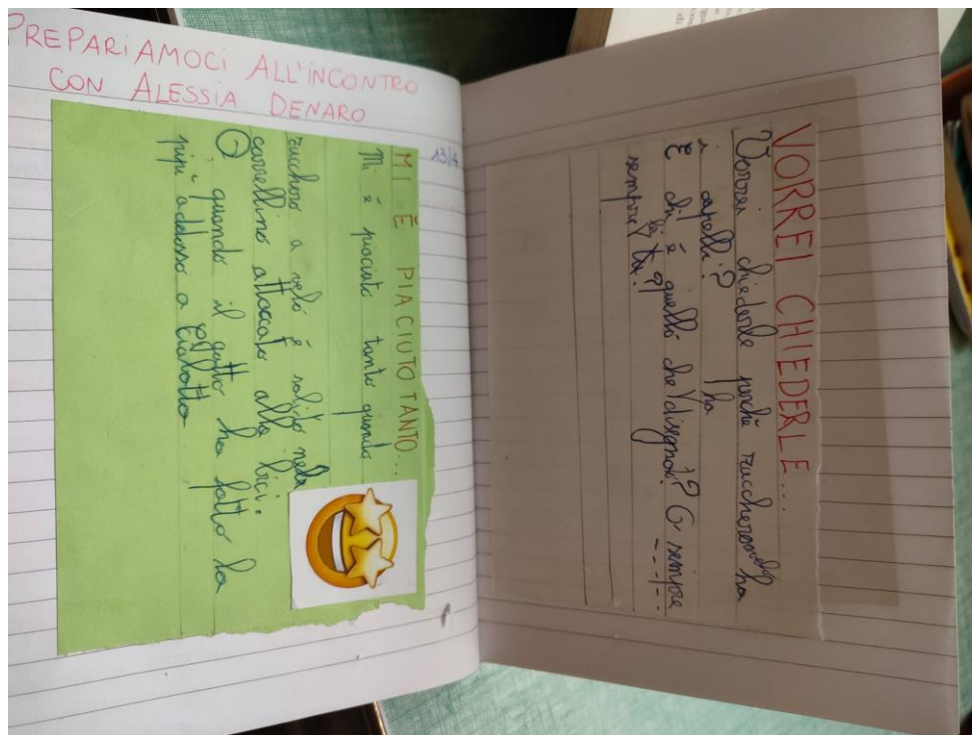 PREPARIAMOCI ALL'INCONTRO
CON ALESSIA DENARO
13/4
MI È PIACIUTO TANTO...
Mi è piaciuto tanto quando
zucchero a velo è salito nel
carrellino attaccato alla bici.
O quando il gatto ha fatto la
pipì addosso a
VORREI CHIEDERLE...
Vorrei chiederle perché zuccheroavelo ha
i capelli?
E chi è quello che ha disegnato? C sempre
sempre lei tu?